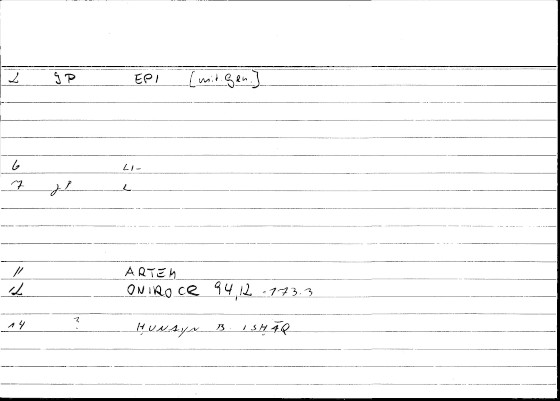 2 JP EPI [mit Gen.]
6 LI-
7 JP L
11 ARTEM
12 ONIROCR 94,12 -173.3
14 ? ḤUNAYN B. ISḤĀQ